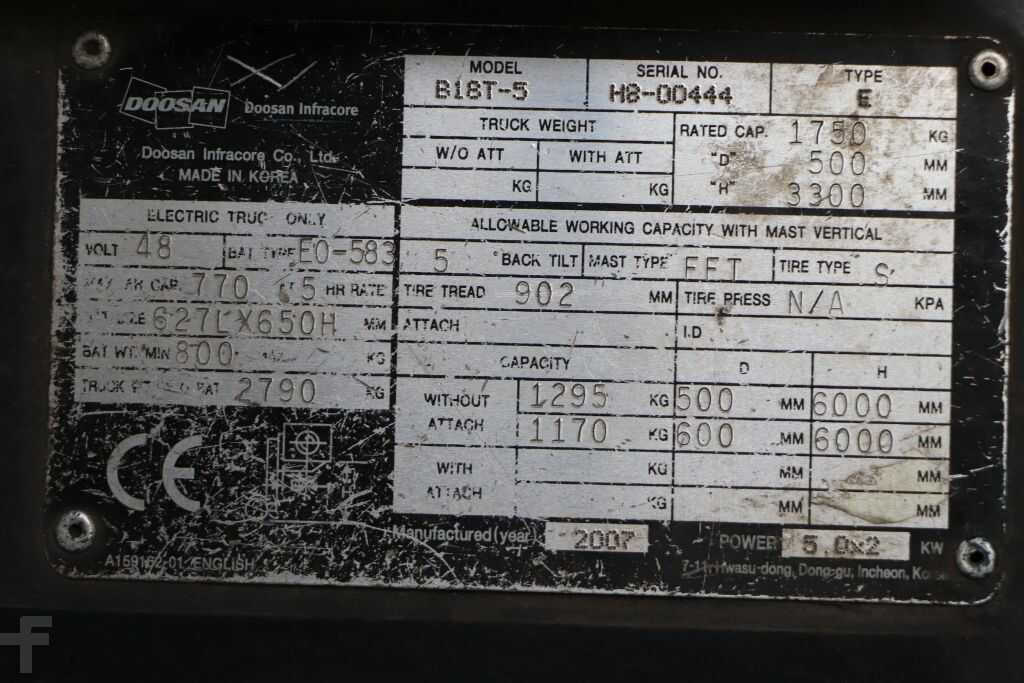 DOOSAN Doosan Infracore
Doosan Infracore Co., Ltd.
MADE IN KOREA
MODEL SERIAL NO. TYPE
B18T-5 H8-00444 E
TRUCK WEIGHT RATED CAP. 1750 KG
W/O ATT WITH ATT "D" 500 MM
KG KG "H" 3300 MM
ELECTRIC TRUCK ONLY
VOLT 48 BAT TYPE EO-583
770 5 HR RATE
627L X650H MM
BAT WT. MIN 800 KG
TRUCK BAT 2790 KG
ALLOWABLE WORKING CAPACITY WITH MAST VERTICAL
5 ° BACK TILT MAST TYPE FFT TIRE TYPE S
TIRE TREAD 902 MM TIRE PRESS N/A KPA
ATTACH I.D
CAPACITY D H
WITHOUT 1295 KG 500 MM 6000 MM
ATTACH 1170 KG 600 MM 6000 MM
WITH KG MM MM
ATTACH KG MM MM
CE
Manufactured (year) 2007 POWER 5.0x2 KW
A159162-01 ENGLISH
7-11, Hwasu-dong, Dong-gu, Incheon, Korea